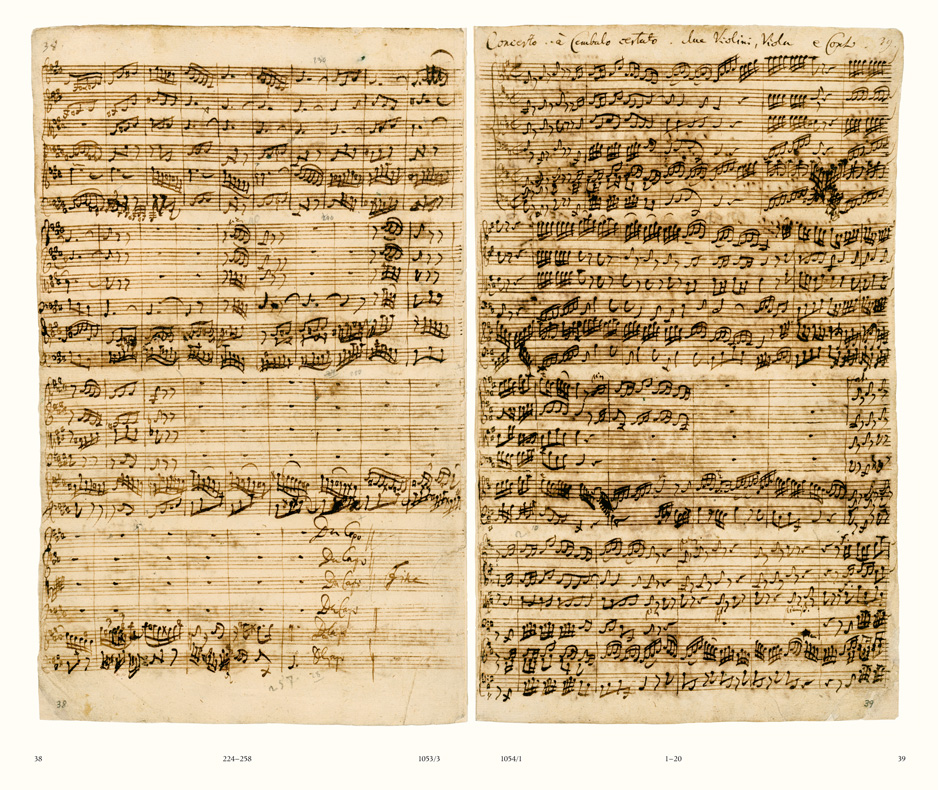 38
Da Capo
Da Capo
Da Capo
Fine
Da Capo
Da Capo
Da Capo
38
Concerto. à Cembalo certato. due Violini, Viola e Cont. 39
39
38 224–258 1053/3
1054/1 1–20 39